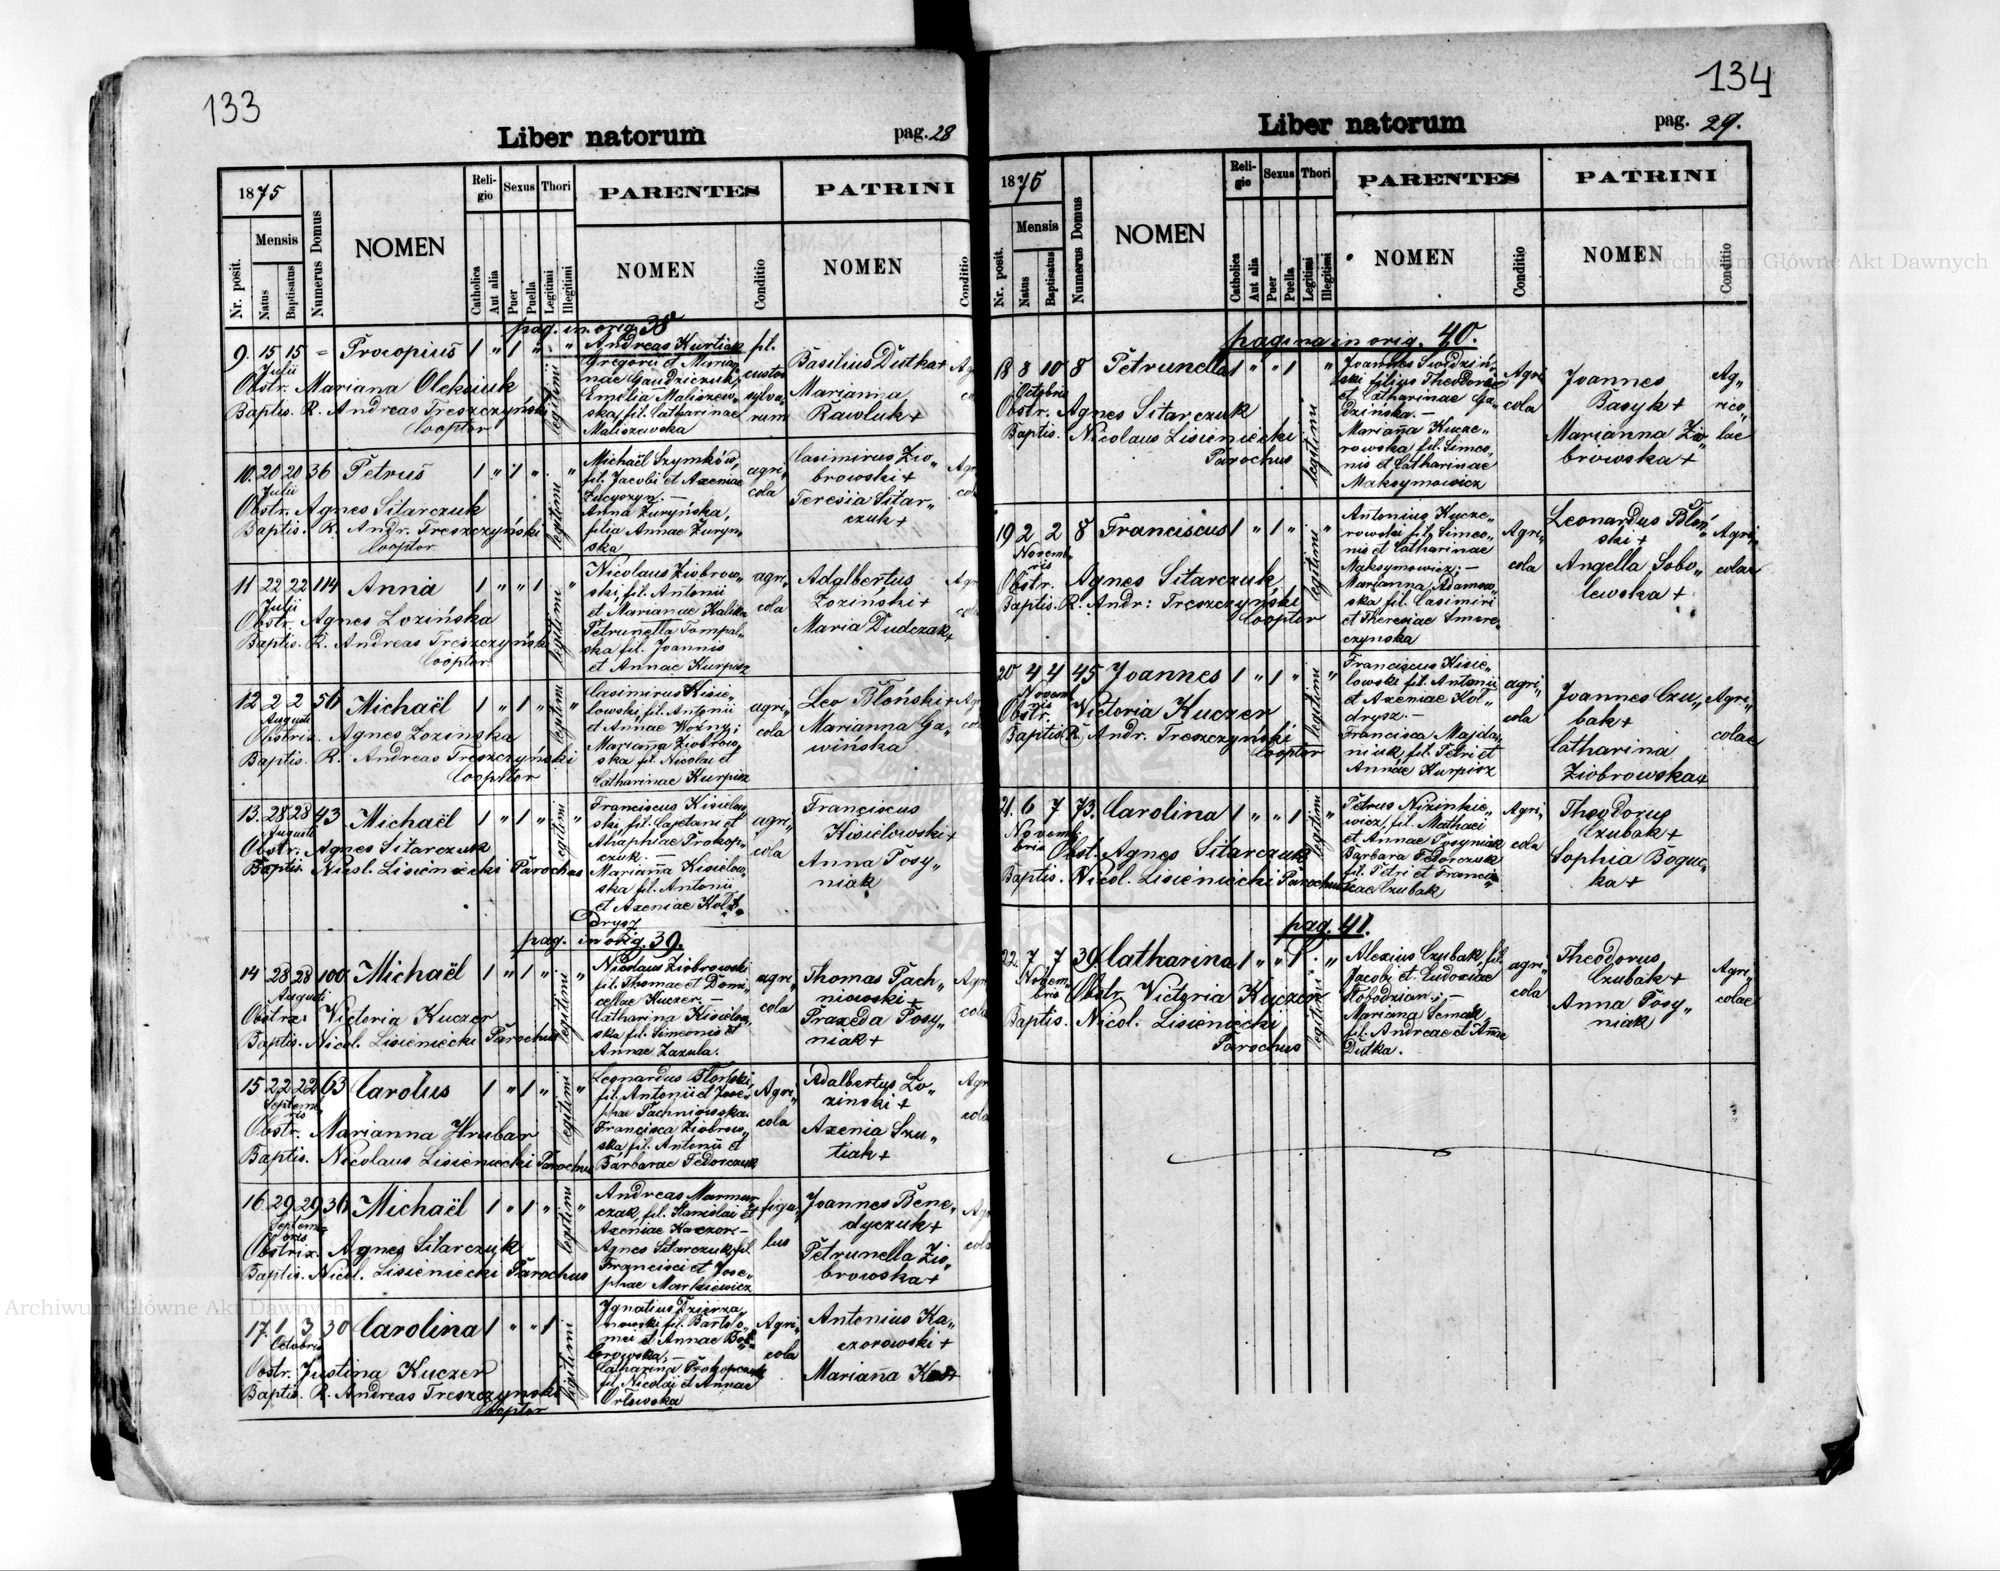 133
Liber natorum pag. 28
1875 Religio Sexus Thori PARENTES PATRINI
Mensis
Nr. posit. Natus Baptisatus Numerus Domus NOMEN Catholica Aut alia Puer Puella Legitimi Illegitimi NOMEN Conditio NOMEN Conditio
pag. in orig. 38
9. 15 15 = Procopius 1 " 1 " "
Julii
Obstr. Mariana Oleksiuk
Baptis. R. Andreas Treszczyński
Cooptor
legitimi
Andreas Kurtiak
Gregorii et Marian„
nae Gaudziczuk,
Emilia Maliszew„
ska, fil. Catharinae
Maliszewska
fil.
custos
sylva„
rum
Basilius Dutka +
Marianna
Rawluk +
10. 20 20 36 Petrus 1 " 1 " "
Julii
Obstr. Agnes Sitarczuk
Baptis. R. Andr. Treszczyński
Cooptor
legitimi
Michaël Szymków,
fil. Jacobi et Axeniae
Anna Zuryńska,
filia Annae Zuryn„
ska
agri„
cola
Casimirus Zio„
browski +
Teresia Sitar„
czuk +
11 22 22 114 Anna 1 " " 1 "
Julii
Obstr. Agnes Lozińska
Baptis. R. Andreas Treszczyński
Cooptor
legitimi
Nicolaus Ziobrow„
ski, fil. Antonii
et Marianae Kalita
Petrunella Tompal„
ska fil. Joannis
et Annae Kurpisz
agri„
cola
Adalbertus
Loziński +
Maria Dudczak +
12 2 2 56 Michaël 1 " 1 " "
Augusti
Obstrix. Agnes Lozinska
Baptis. R. Andreas Treszczyński
Cooptor
legitimi
Casimirus Kisie„
lowski, fil. Antonii
et Annae Woźny;
Mariana Ziobrow„
ska fil. Nicolai et
Catharinae Kurpisz
agri„
cola
Leo Błoński +
Marianna Ga„
wińska
13. 28 28 43 Michaël 1 " 1 " "
Augusti
Obstr. Agnes Sitarczuk
Baptis. Nicol. Lisieniecki Parochus
legitimi
Franciscus Kisielow„
ski, fil. Cajetani et
Ahaphiae Prokop„
czuk. —
Marianna Kisielow„
ska fil. Antonii
et Axeniae Kol„
drysz
agri„
cola
Franciscus
Kisielowski +
Anna Posy„
niak
pag. in orig. 39.
14 28 28 100 Michaël 1 " 1 " "
Augusti
Obstrx: Victoria Kuczer
Baptis. Nicol. Lisieniecki Parochus
legitimi
Nicolaus Ziobrowski
fil. Thomae et Domi„
cellae Kuczer. —
Catharina Kisielow„
ska fil. Simeonis et
Annae Zazula.
agri„
cola
Thomas Pach„
niowski +
Praxeda Posy„
niak +
15 22 22 63 Carolus 1 " 1 " "
Septemb„
ris
Obstr. Marianna Hrubar
Baptis. Nicolaus Lisieniecki Parochus
legitimi
Leonardus Błoński,
fil. Antonii et Jose„
phae Pachniowska.
Francisca Ziobrow„
ska, fil. Antonii et
Barbarae Fedorczuk
Agri„
cola
Adalbertus Lo„
zinski +
Axenia Szu„
tiak +
16. 29 29 36 Michaël 1 " 1 " "
Septem„
bris
Obstrix. Agnes Sitarczuk
Baptis. Nicol. Lisieniecki Parochus
legitimi
Andreas Marmur„
czak, fil. Stanislai et
Axeniae Kaczor. —
Agnes Sitarczuk, fil.
Francisci et Jose„
phae Markiewicz
figu„
lus
Joannes Bene„
dyczuk +
Petrunella Zio„
browska +
17. 1 3 30 Carolina 1 " " 1
Octobris
Obstr. Justina Kuczer
Baptis. R. Andreas Treszczynski
Cooptor
legitimi
Ignatius Dzierza„
nowski fil. Bartolo„
mei et Annae
Catharina Prokopczuk
fil. Nicolai et Annae
Orłowska
Agri„
cola
Antonius Ka„
czorowski +
Marianna
134
Liber natorum pag. 29.
1875 Religio Sexus Thori PARENTES PATRINI
Mensis
Nr. posit. Natus Baptisatus Numerus Domus NOMEN Catholica Aut alia Puer Puella Legitimi Illegitimi NOMEN Conditio NOMEN Conditio
pagina in orig. 40.
18 8 10 8 Petrunella 1 " " 1 "
Octobris
Obstr. Agnes Sitarczuk
Baptis. Nicolaus Lisieniecki
Parochus
legitimi
ski filius Theodori
et Catharinae Ga„
dzińska. —
Marianna Kucze„
rowska fil. Simeo„
nis et Catharinae
Maksymowicz
Agri„
cola
Joannes
Basyk +
Marianna Zio„
browska +
Ag„
rico„
lae
19 2 2 8 Franciscus 1 " 1 " "
Novemb„
ris
Obstr. Agnes Sitarczuk
Baptis. R. Andr: Treszczyński
Cooptor
legitimi
Antonius Kucze„
rowski fil. Simeo„
nis et Catharinae
Maksymowicz; —
Marianna Adamow„
ska fil. Casimiri
et Theresiae Smere„
czynska
Agri„
cola
Leonardus Błoń„
ski +
Angella Sobo„
lewska +
Agri„
colae
20 4 4 45 Joannes 1 " 1 " "
Novemb„
ris
Obstr. Victoria Kuczer
Baptis. R. Andr. Treszczyński
Cooptor
legitimi
Franciscus Kisie„
lowski fil. Antonii
et Axeniae Kol„
drysz. —
Francisca Majda„
niuk, fil. Petri et
Annae Kurpisz
agri„
cola
Joannes Czu„
bak +
Catharina
Ziobrowska +
Agri„
colae
21. 6 7 73. Carolina 1 " " 1 "
Novem„
bris
Obst. Agnes Sitarczuk
Baptis. Nicol. Lisieniecki Parochus
legitimi
Petrus Niżinkie„
wicz, fil. Mathaei
et Annae Posyniak
Barbara Fedorczuk
fil. Petri et Francis„
cae Czubak
Agri„
cola
Theodorus
Czubak +
Sophia Boguc„
ka +
pag. 41.
22. 7 7 39. Catharina 1 " " 1 "
Novem„
bris
Obstr. Victoria Kuczer
Baptis. Nicol. Lisieniecki
Parochus
legitimi
Alexius Czubak, fil.
Jacobi et Eudoxiae
Słobodzian; —
Mariana Semak,
fil. Andreae et Annae
Dutka.
agri„
cola
Theodorus
Czubak +
Anna Posy„
niak
Agri„
colae
Archiwum Główne Akt Dawnych
Archiwum Główne Akt Dawnych